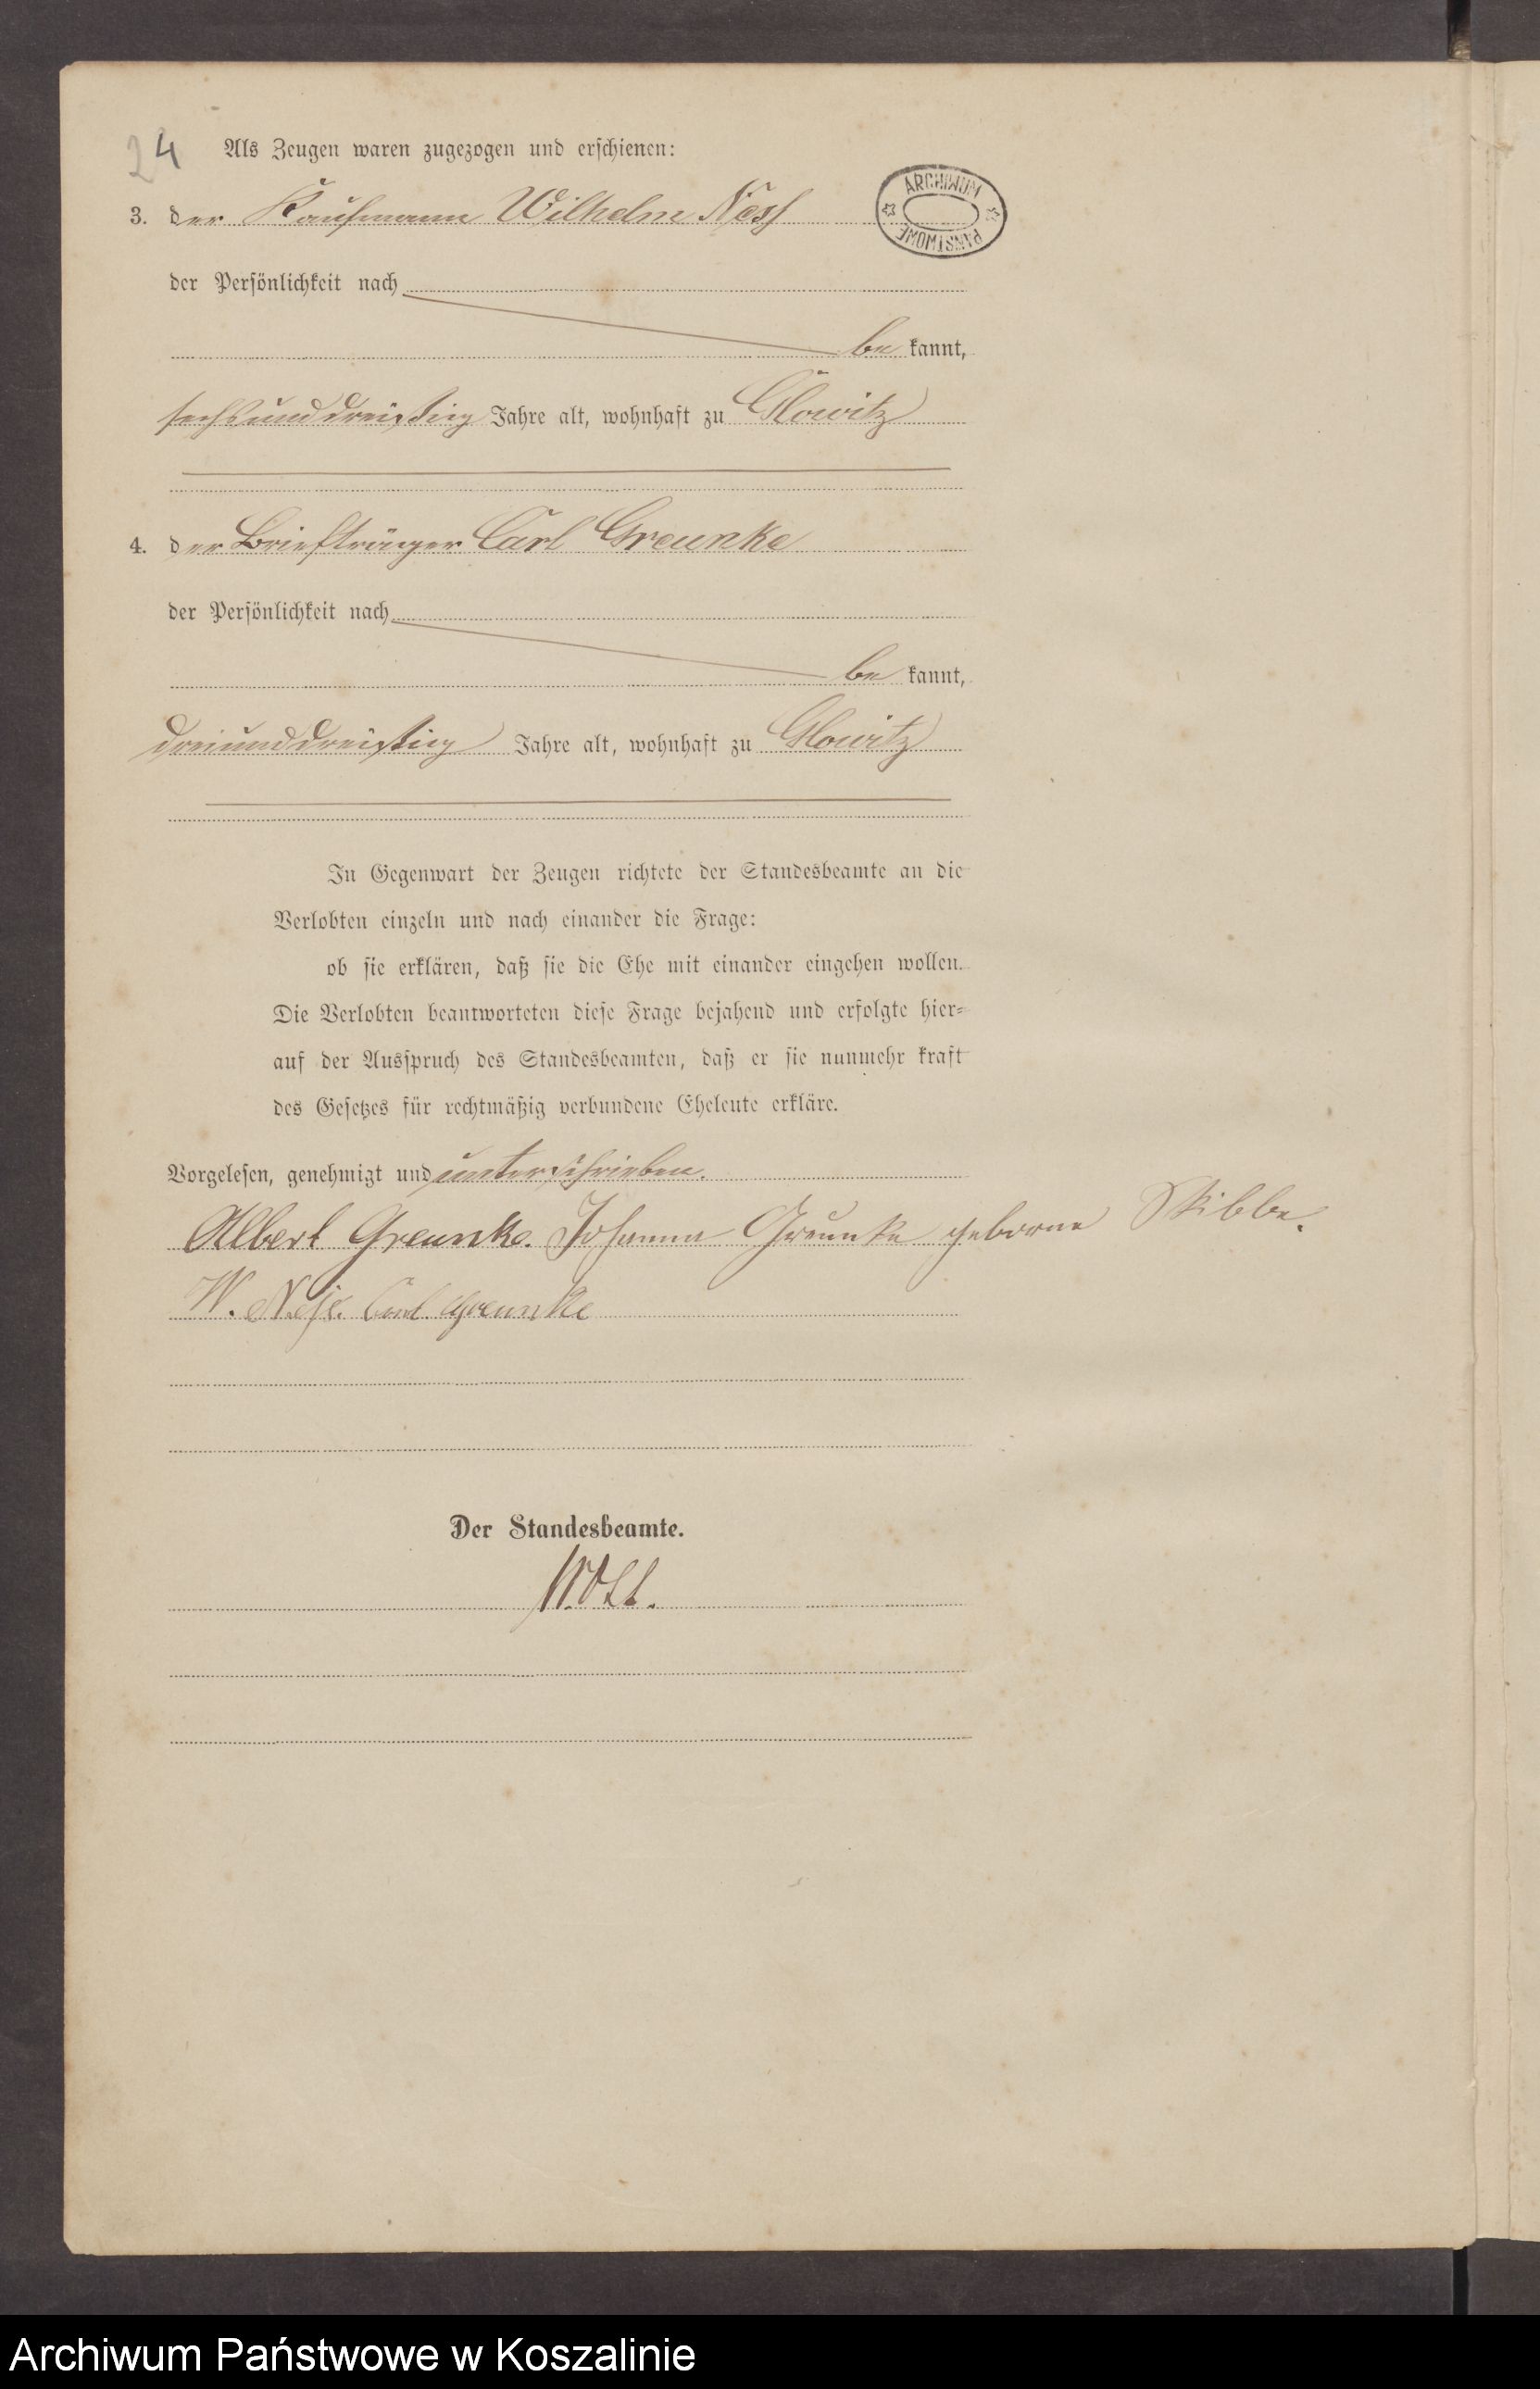 24
Als Zeugen waren zugezogen und erschienen:
ARCHIWUM PAŃSTWOWE
3. der Kaufmann Wilhelm Ness
der Persönlichkeit nach
be kannt,
sechsunddreißig Jahre alt, wohnhaft zu Glowitz
4. der Briefträger Carl Greunke
der Persönlichkeit nach
be kannt,
dreiunddreißig Jahre alt, wohnhaft zu Glowitz
In Gegenwart der Zeugen richtete der Standesbeamte an die
Verlobten einzeln und nach einander die Frage:
ob sie erklären, daß sie die Ehe mit einander eingehen wollen.
Die Verlobten beantworteten diese Frage bejahend und erfolgte hier-
auf der Ausspruch des Standesbeamten, daß er sie nunmehr kraft
des Gesetzes für rechtmäßig verbundene Eheleute erkläre.
Vorgelesen, genehmigt und unterschrieben.
Albert Greunke. Johanna Greunke geborne Skibbe.
W. Ness. Carl Greunke
Der Standesbeamte.
Archiwum Państwowe w Koszalinie